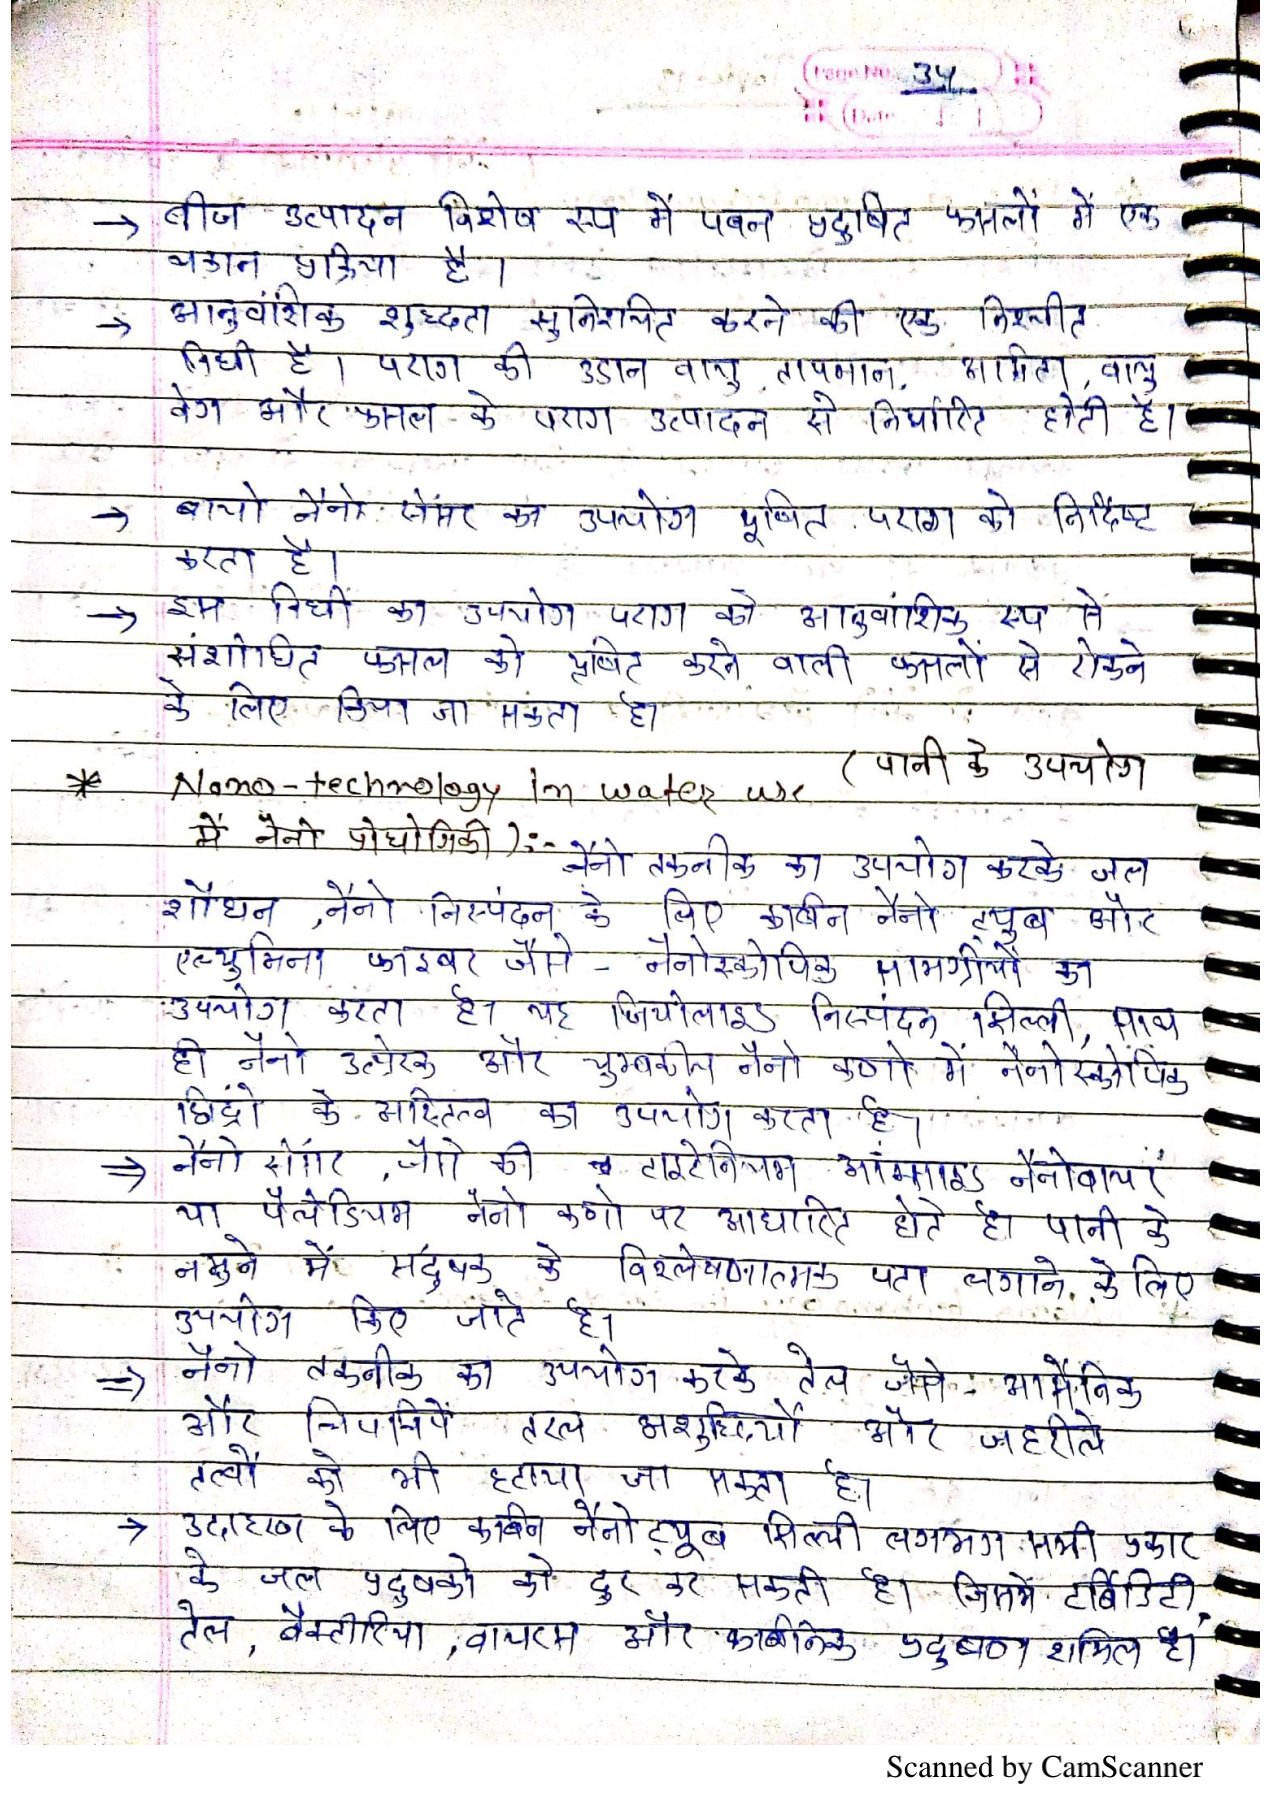 Page No. 34
Date / /
→ बीज उत्पादन विशेष रूप में पवन प्रदुषित फसलों में एक
थकान प्रक्रिया है।
→ आनुवांशिक शुध्दता सुनिश्चित करने की एक निश्चीत
विधी है। पराग की उडान वायु, तापमान, आर्मिता, वायु
वेग और फसल के पराग उत्पादन से निर्धारित होती है।
→ बायो नैनो सेंसर का उपयोग पूषित पराग को निर्दिष्ट
करता है।
→ इस विधी का उपयोग पराग को आनुवांशिक रूप से
संशोधित फसल को प्रुषित करने वाली फसलों से रोकने
के लिए किया जा सकता है।
* Nano-technology In water use (पानी के उपयोग
में नैनो प्रोघोगिकी):-
नैनो तकनीक का उपयोग करके जल
शौधन, नैनो निस्पंदन के लिए कार्बन नैनो ट्यूब और
एल्युमिना फाइबर जैसे - नैनोस्कोपिक सामग्रीयों का
उपयोग करता है। यह जियोलाइड निस्पंदन झिल्ली, साथ
ही नैनो उत्प्रेरक और चुम्बकीय नैनो कणो में नैनोस्कोपिक
छिद्रों के अस्तित्व का उपयोग करता है।
⇒ नैनो सेंसर, जैसे की टाइटेनियम ऑक्साइड नैनोवायर
या पैलेडियम नैनो कणो पर आधारित होते है। पानी के
नमुने में संदुषक के विश्लेषणात्मक पता लगाने के लिए
उपयोग किए जाते है।
⇒ नैनो तकनीक का उपयोग करके तेल जैसे - आर्सेनिक
और चिपचिपें तरल अशुद्धियों और जहरीले
तत्वों को भी हटाया जा सकता है।
→ उदाहरण के लिए कार्बन नैनो ट्यूब झिल्ली लगभग सभी प्रकार
के जल प्रदुषको को दुर कर सकती है। जिसमें टर्बिडिटी,
तेल, बैक्टीरिया, वायरस और कार्बनिक प्रदुषण शामिल है।
Scanned by CamScanner